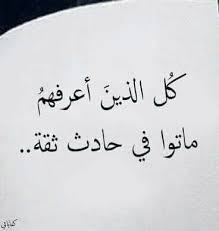 كُل الذينَ أعرفهمُ
ماتوا في حادث ثقة..
كتاباتي